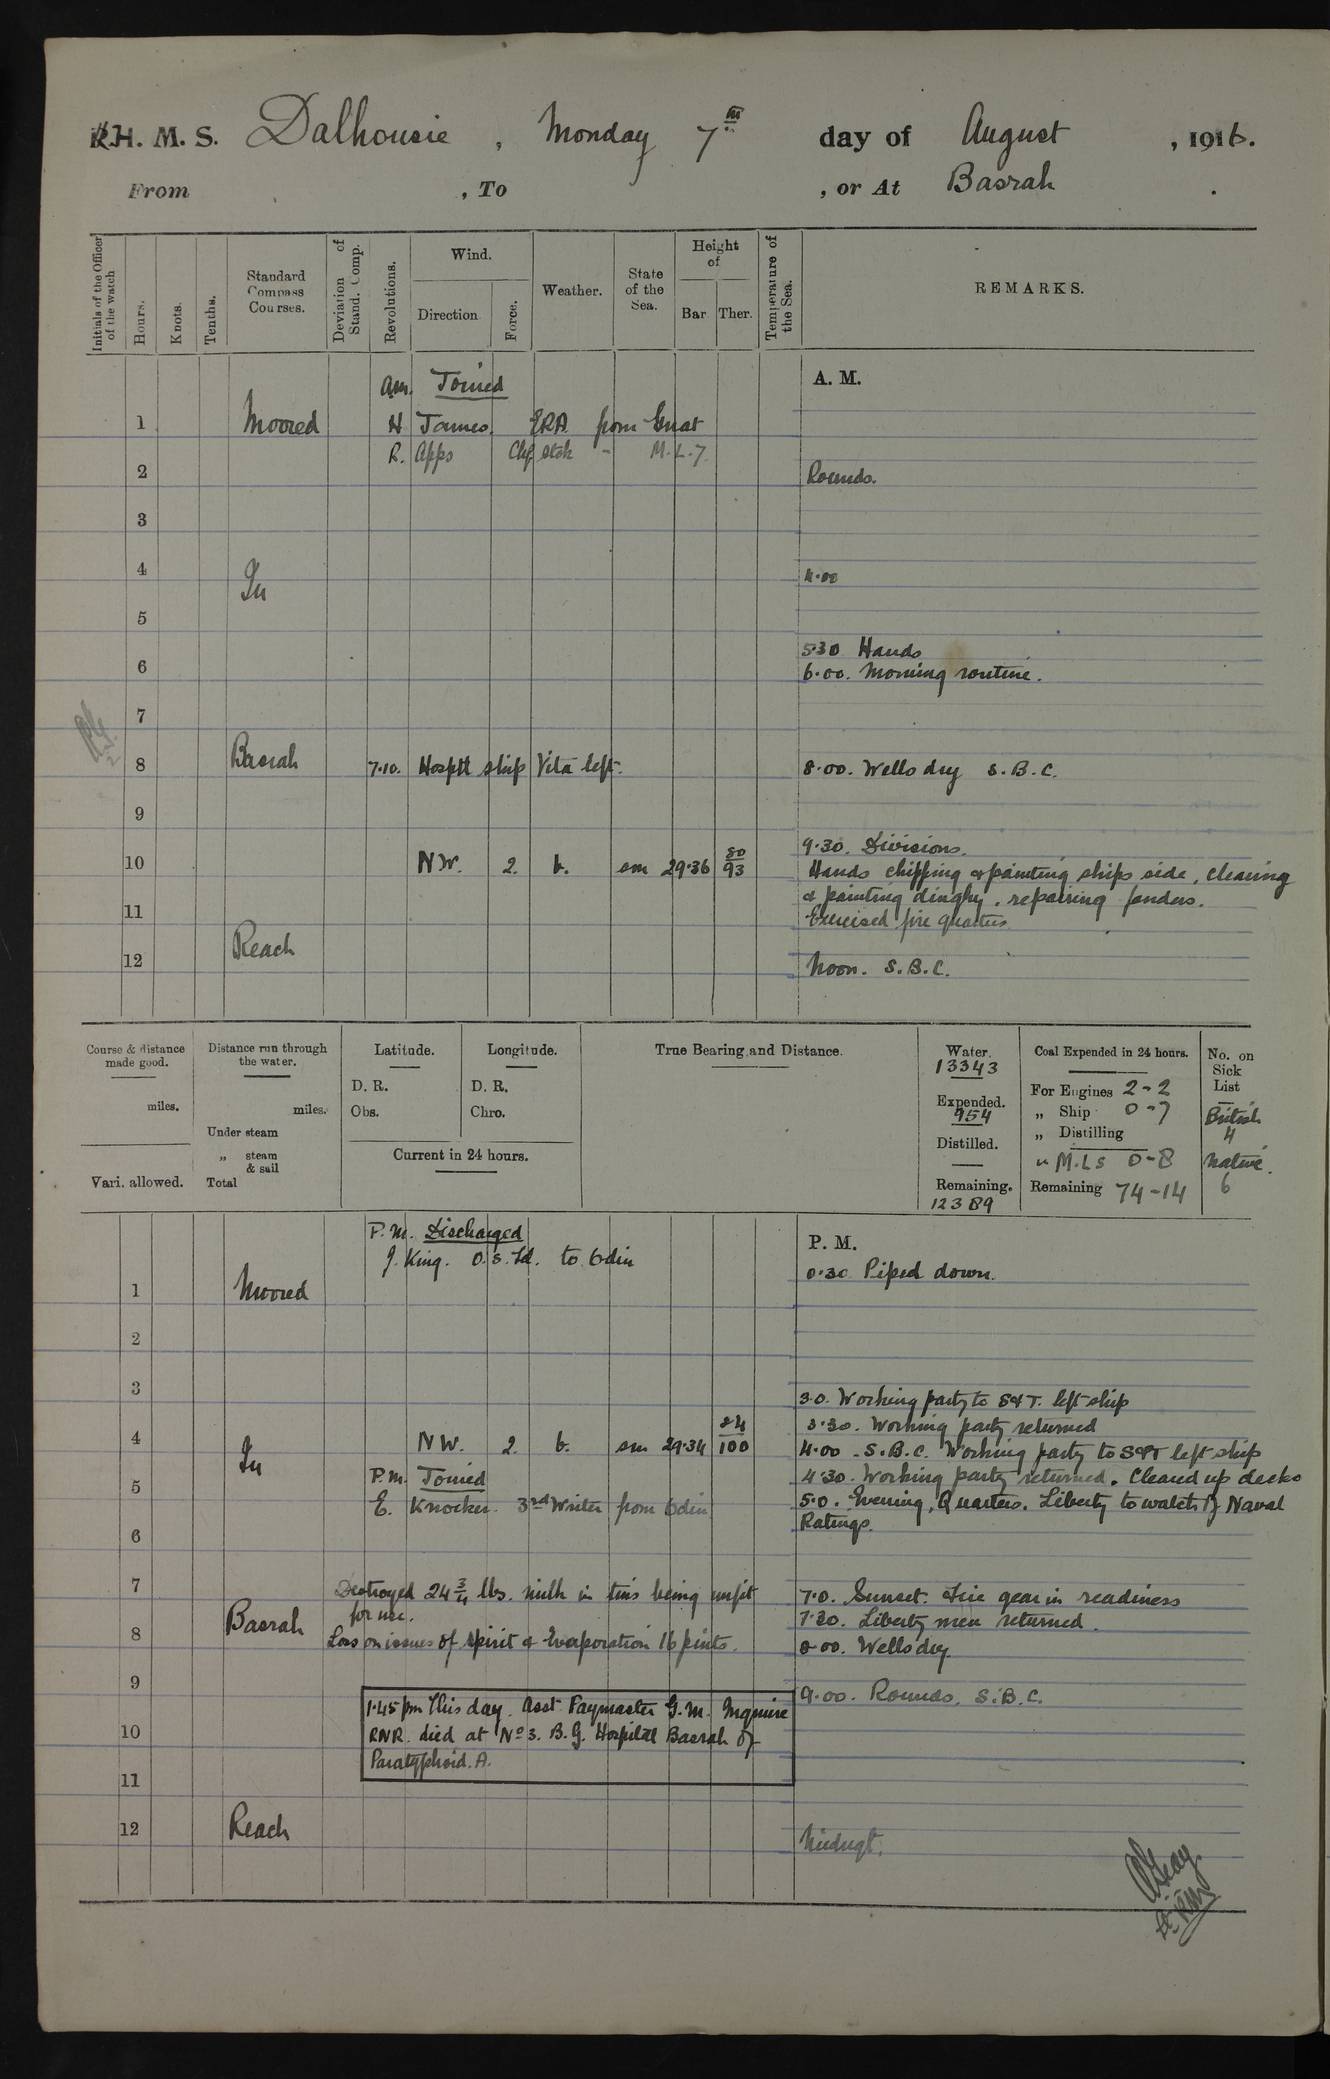 H. M. S. Dalhousie, Monday 7th day of August, 1916.
From , To , or At Basrah.
Initials of the Officer of the watch
Hours.
Knots.
Tenths.
Standard Compass Courses.
Deviation of Stand. Comp.
Revolutions.
Wind.
Direction
Force.
Weather.
State of the Sea.
Height of
Bar
Ther.
Temperature of the Sea.
REMARKS.
am. Joined
A. M.
1 Moored H James. ERA from Gnat
R. Apps Chf Stok - M.L.7.
2 Rounds.
3
4 In 4.00
5
5.30 Hands
6 6.00. Morning routine.
7
8 Basrah 7.10. Hosptl ship Vita left. 8.00. Wells dry S.B.C.
9
9.30. Divisions.
10 NW. 2. b. sm 29.36 80/93 Hands chipping & painting ships side, cleaning
& painting dinghy, repairing fenders.
11 Exercised fire quarters
Reach
12 Noon. S.B.C.
Course & distance made good.
miles.
Vari. allowed.
Distance run through the water.
miles.
Under steam
„ steam & sail
Total
Latitude.
D. R.
Obs.
Longitude.
D. R.
Chro.
Current in 24 hours.
True Bearing and Distance.
Water.
13343
Expended.
954
Distilled.
Remaining.
12389
Coal Expended in 24 hours.
For Engines 2-2
„ Ship 0-7
„ Distilling
„ M.Ls 0-8
Remaining 74-14
No. on Sick List
British
4
Native.
6
P.M. Discharged
J. King. O.S. Ld. to Odin
P. M.
0.30 Piped down.
1 Moored
2
3 3.0. Working party to S&T. left ship
3.30. Working party returned
4 In NW. 2. b. sm 29.34 84/100 4.00. S.B.C. Working party to S&T left ship
P.M. Joined 4.30. Working party returned. Cleared up decks
5 E. Knocker. 3rd Writer from Odin 5.0. Evening Quarters. Liberty to watch of Naval
Ratings.
6
7 Destroyed 24 3/4 lbs. milk in tins being unfit 7.0. Sunset. Fire gear in readiness
for use. 7.30. Liberty men returned.
8 Basrah Loss on issues of spirit & Evaporation 16 pints. 8.00. Wells dry
9 9.00. Rounds. S.B.C.
1.45 pm This day. Asst Paymaster G.M. Ingmire
10 RNR. died at No 3. B.G. Hospital Basrah of
Paratyphoid. A.
11
12 Reach Midngt.